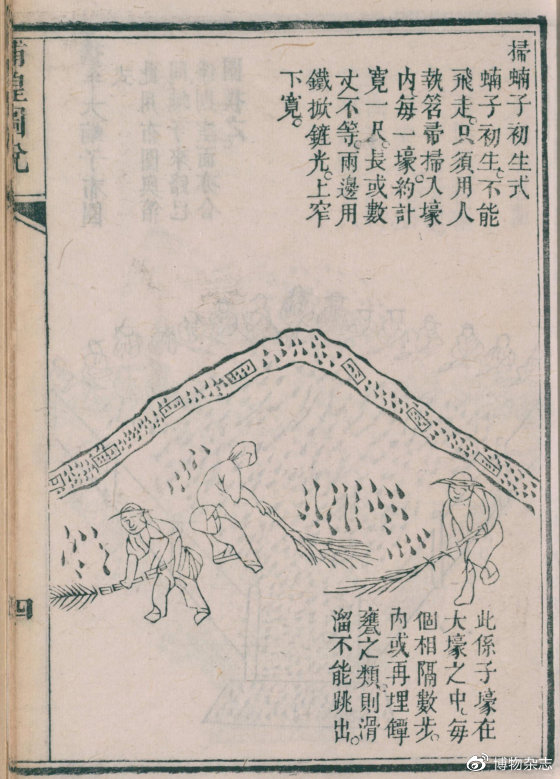 掃蝻子初生式
蝻子初生。不能
飛走。只須用人
執笤帚掃入壕
內。每一壕約計
寬一尺。長或數
丈不等。兩邊用
鐵掀鏟光。上窄
下寬。
此係子壕在
大壕之中。每
個相隔數步。
內或再埋罈
甕之類。則滑
溜不能跳出。
捕蝗圖說
四
博物杂志